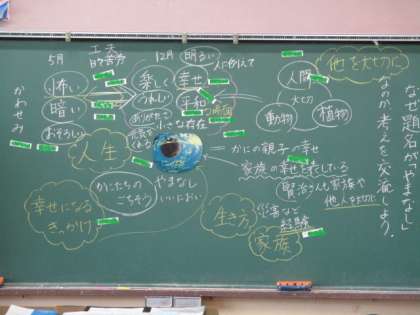 なぜ題名が「やまなし」
なのか考えを交流しよう。
他を大切に
人間
大切
動物
植物
工夫
5月
12月
明るい
怖い
楽しく
うれしい
幸せ
暗い
平和
ありがたい
小さな存在
おそろしい
かわせみ
人生
かにの親子の幸せ
家族の幸せを表している
賢治さんも家族や
他人を大切に
かにたちの
ごちそう
やまなし
いいにおい
幸せになる
きっかけ
生き方
災害など
経験
家族